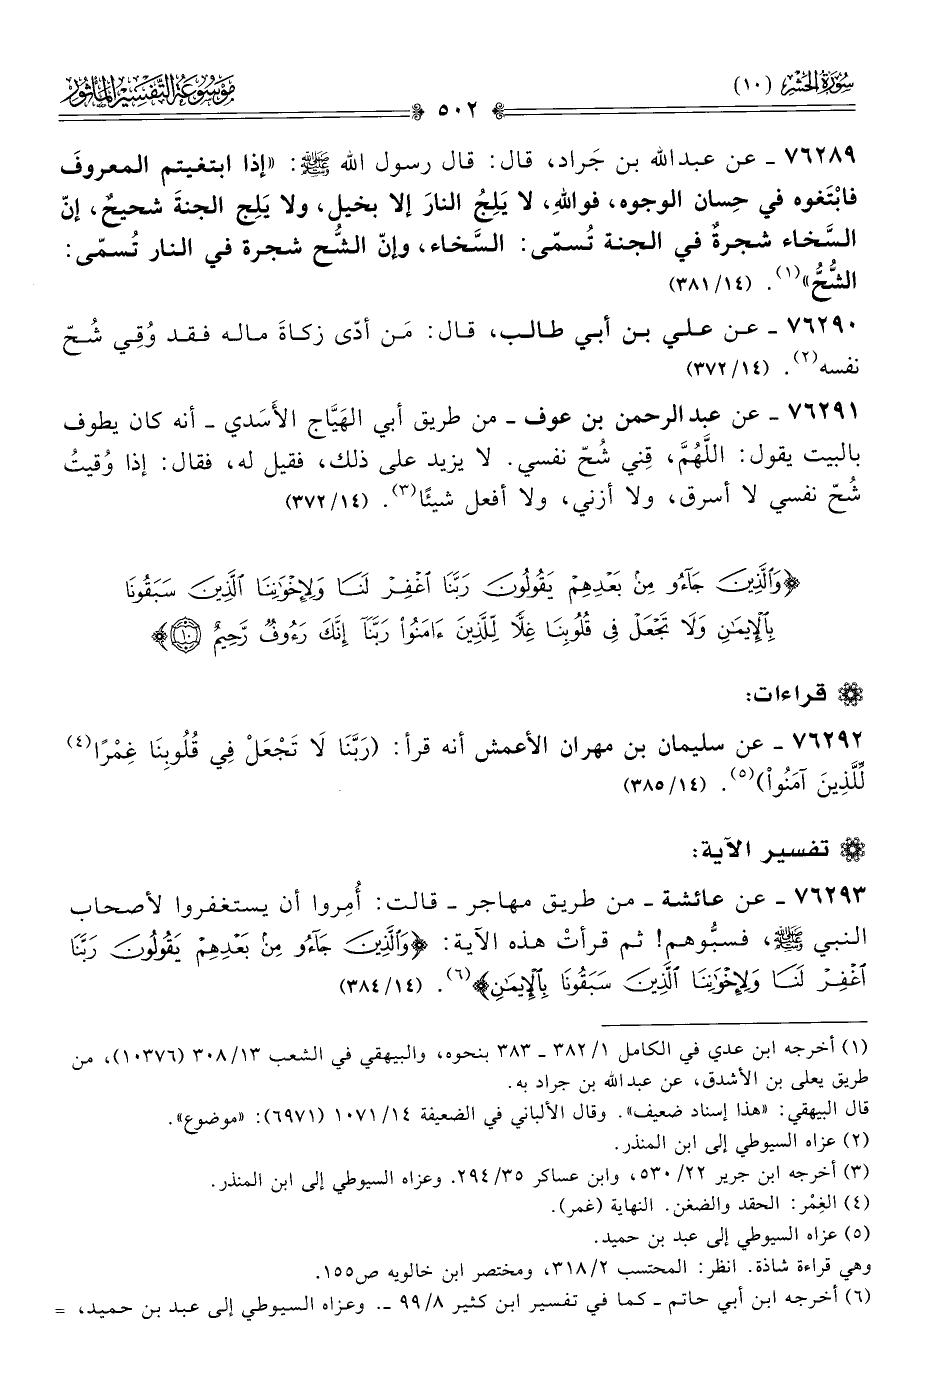 سُورَةُ الحَشْرِ (١٠)
٥٠٢
مَوْسُوعَة التَّفْسِيرِ المَأْثُور
٧٦٢٨٩ ـ عن عبدالله بن جَراد، قال: قال رسول الله ﷺ: «إذا ابتغيتم المعروفَ
فابْتَغوه في حِسان الوجوه، فواللهِ، لا يَلِجُ النارَ إلا بخيل، ولا يَلِج الجنةَ شحيحٌ، إنّ
السَّخاء شجرةٌ في الجنة تُسمّى: السَّخاء، وإنّ الشُّح شجرة في النار تُسمّى:
الشُّحُّ»(١). (٣٨١/١٤)
٧٦٢٩٠ ـ عن علي بن أبي طالب، قال: مَن أدّى زكاةَ ماله فقد وُقِي شُحّ
نفسه(٢). (٣٧٢/١٤)
٧٦٢٩١ ـ عن عبدالرحمن بن عوف ـ من طريق أبي الهَيَّاج الأَسَدي ـ أنه كان يطوف
بالبيت يقول: اللَّهُمَّ، قِني شُحّ نفسي. لا يزيد على ذلك، فقيل له، فقال: إذا وُقيتُ
شُحّ نفسي لا أسرق، ولا أزني، ولا أفعل شيئًا(٣). (٣٧٢/١٤)
﴿وَٱلَّذِينَ جَآءُو مِنۢ بَعْدِهِمْ يَقُولُونَ رَبَّنَا ٱغْفِرْ لَنَا وَلِإِخْوَٰنِنَا ٱلَّذِينَ سَبَقُونَا
بِٱلْإِيمَٰنِ وَلَا تَجْعَلْ فِى قُلُوبِنَا غِلًّا لِّلَّذِينَ ءَامَنُوا۟ رَبَّنَآ إِنَّكَ رَءُوفٌ رَّحِيمٌ ١٠﴾
قراءات:
٧٦٢٩٢ ـ عن سليمان بن مهران الأعمش أنه قرأ: (رَبَّنَا لَا تَجْعَلْ فِي قُلُوبِنَا غِمْرًا(٤)
لِّلَّذِينَ آمَنُواْ)(٥). (٣٨٥/١٤)
تفسير الآية:
٧٦٢٩٣ ـ عن عائشة ـ من طريق مهاجر ـ قالت: أُمِروا أن يستغفروا لأصحاب
النبي ﷺ، فسبُّوهم! ثم قرأتْ هذه الآية: ﴿وَٱلَّذِينَ جَآءُو مِنۢ بَعْدِهِمْ يَقُولُونَ رَبَّنَا
ٱغْفِرْ لَنَا وَلِإِخْوَٰنِنَا ٱلَّذِينَ سَبَقُونَا بِٱلْإِيمَٰنِ﴾(٦). (٣٨٤/١٤)
(١) أخرجه ابن عدي في الكامل ٣٨٢/١ ـ ٣٨٣ بنحوه، والبيهقي في الشعب ٣٠٨/١٣ (١٠٣٧٦)، من
طريق يعلى بن الأشدق، عن عبدالله بن جراد به.
قال البيهقي: «هذا إسناد ضعيف». وقال الألباني في الضعيفة ١٠٧١/١٤ (٦٩٧١): «موضوع».
(٢) عزاه السيوطي إلى ابن المنذر.
(٣) أخرجه ابن جرير ٥٣٠/٢٢، وابن عساكر ٢٩٤/٣٥. وعزاه السيوطي إلى ابن المنذر.
(٤) الغِمْر: الحقد والضغن. النهاية (غمر).
(٥) عزاه السيوطي إلى عبد بن حميد.
وهي قراءة شاذة. انظر: المحتسب ٣١٨/٢، ومختصر ابن خالويه ص١٥٥.
(٦) أخرجه ابن أبي حاتم ـ كما في تفسير ابن كثير ٩٩/٨ ـ. وعزاه السيوطي إلى عبد بن حميد، =